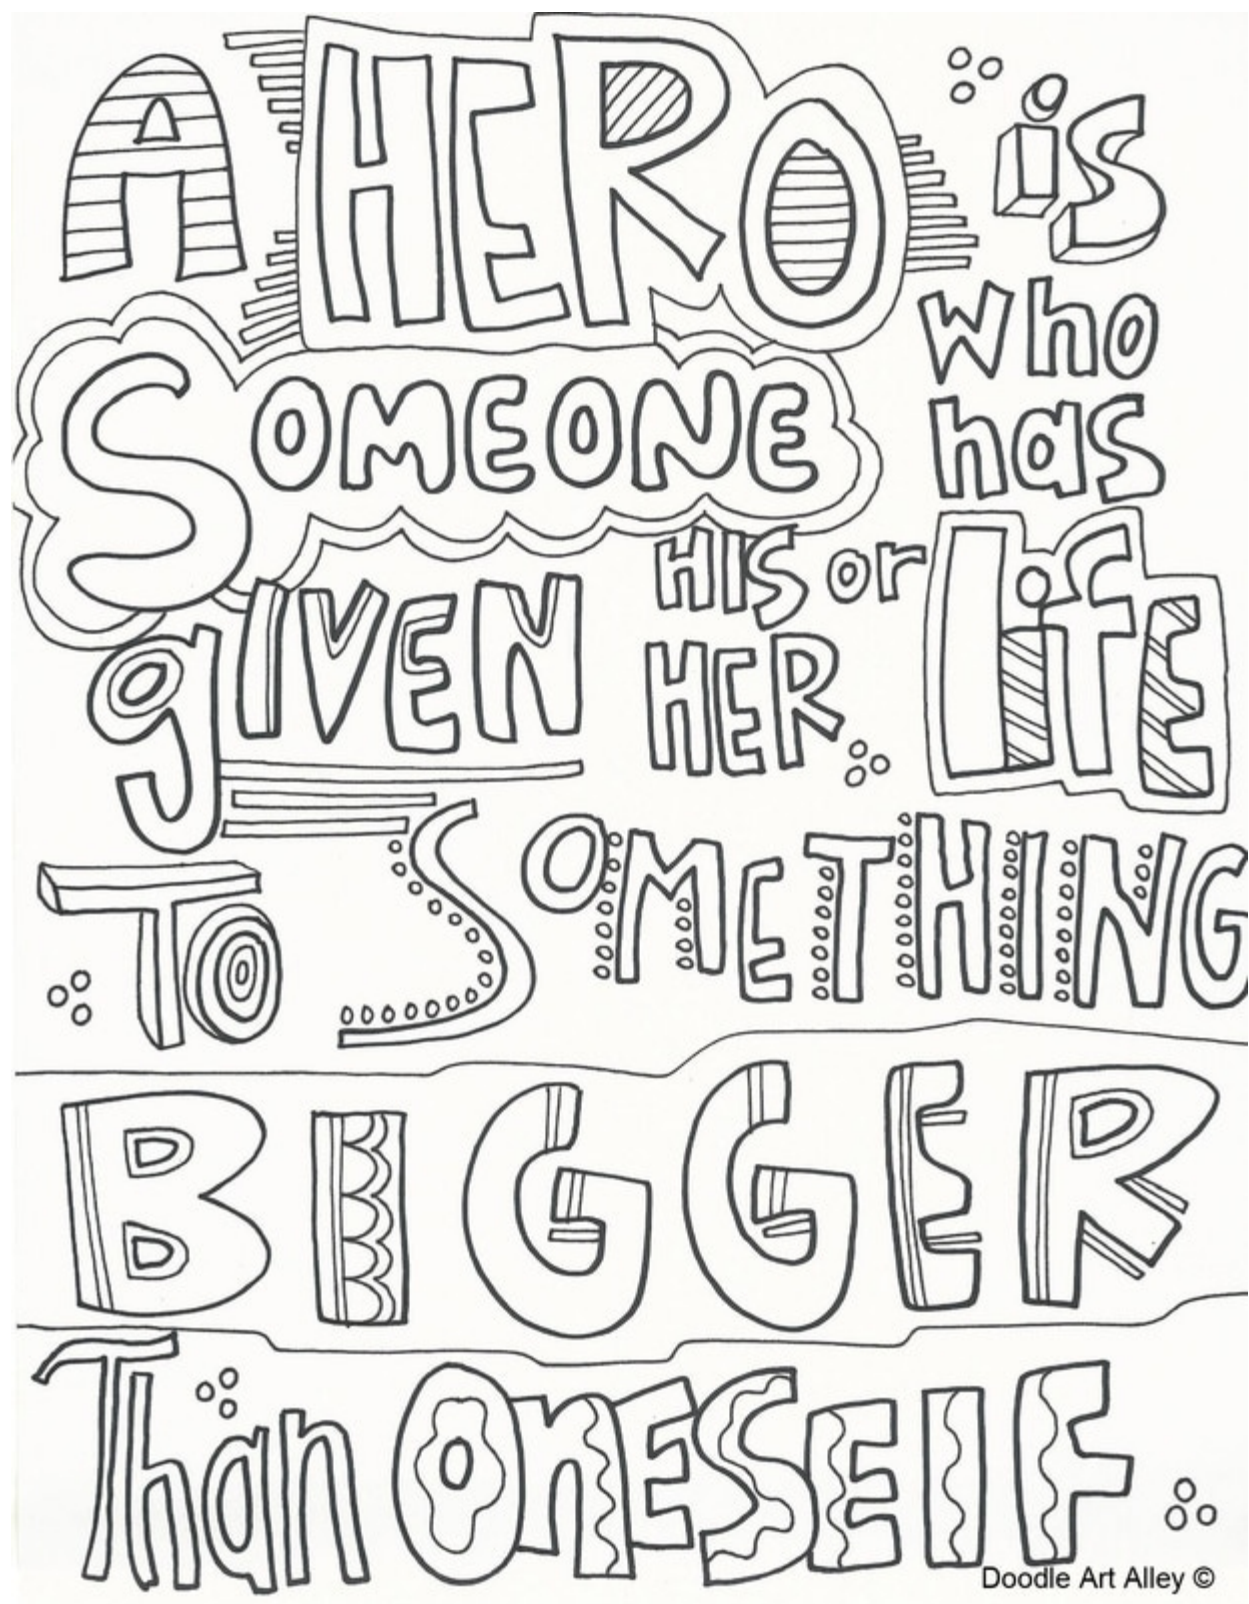 A HERO is
who
SOMEONE
has
gIVEN HIS or
HER LifE
TO SOMETHING
BIGGER
Than OnESElF
Doodle Art Alley ©